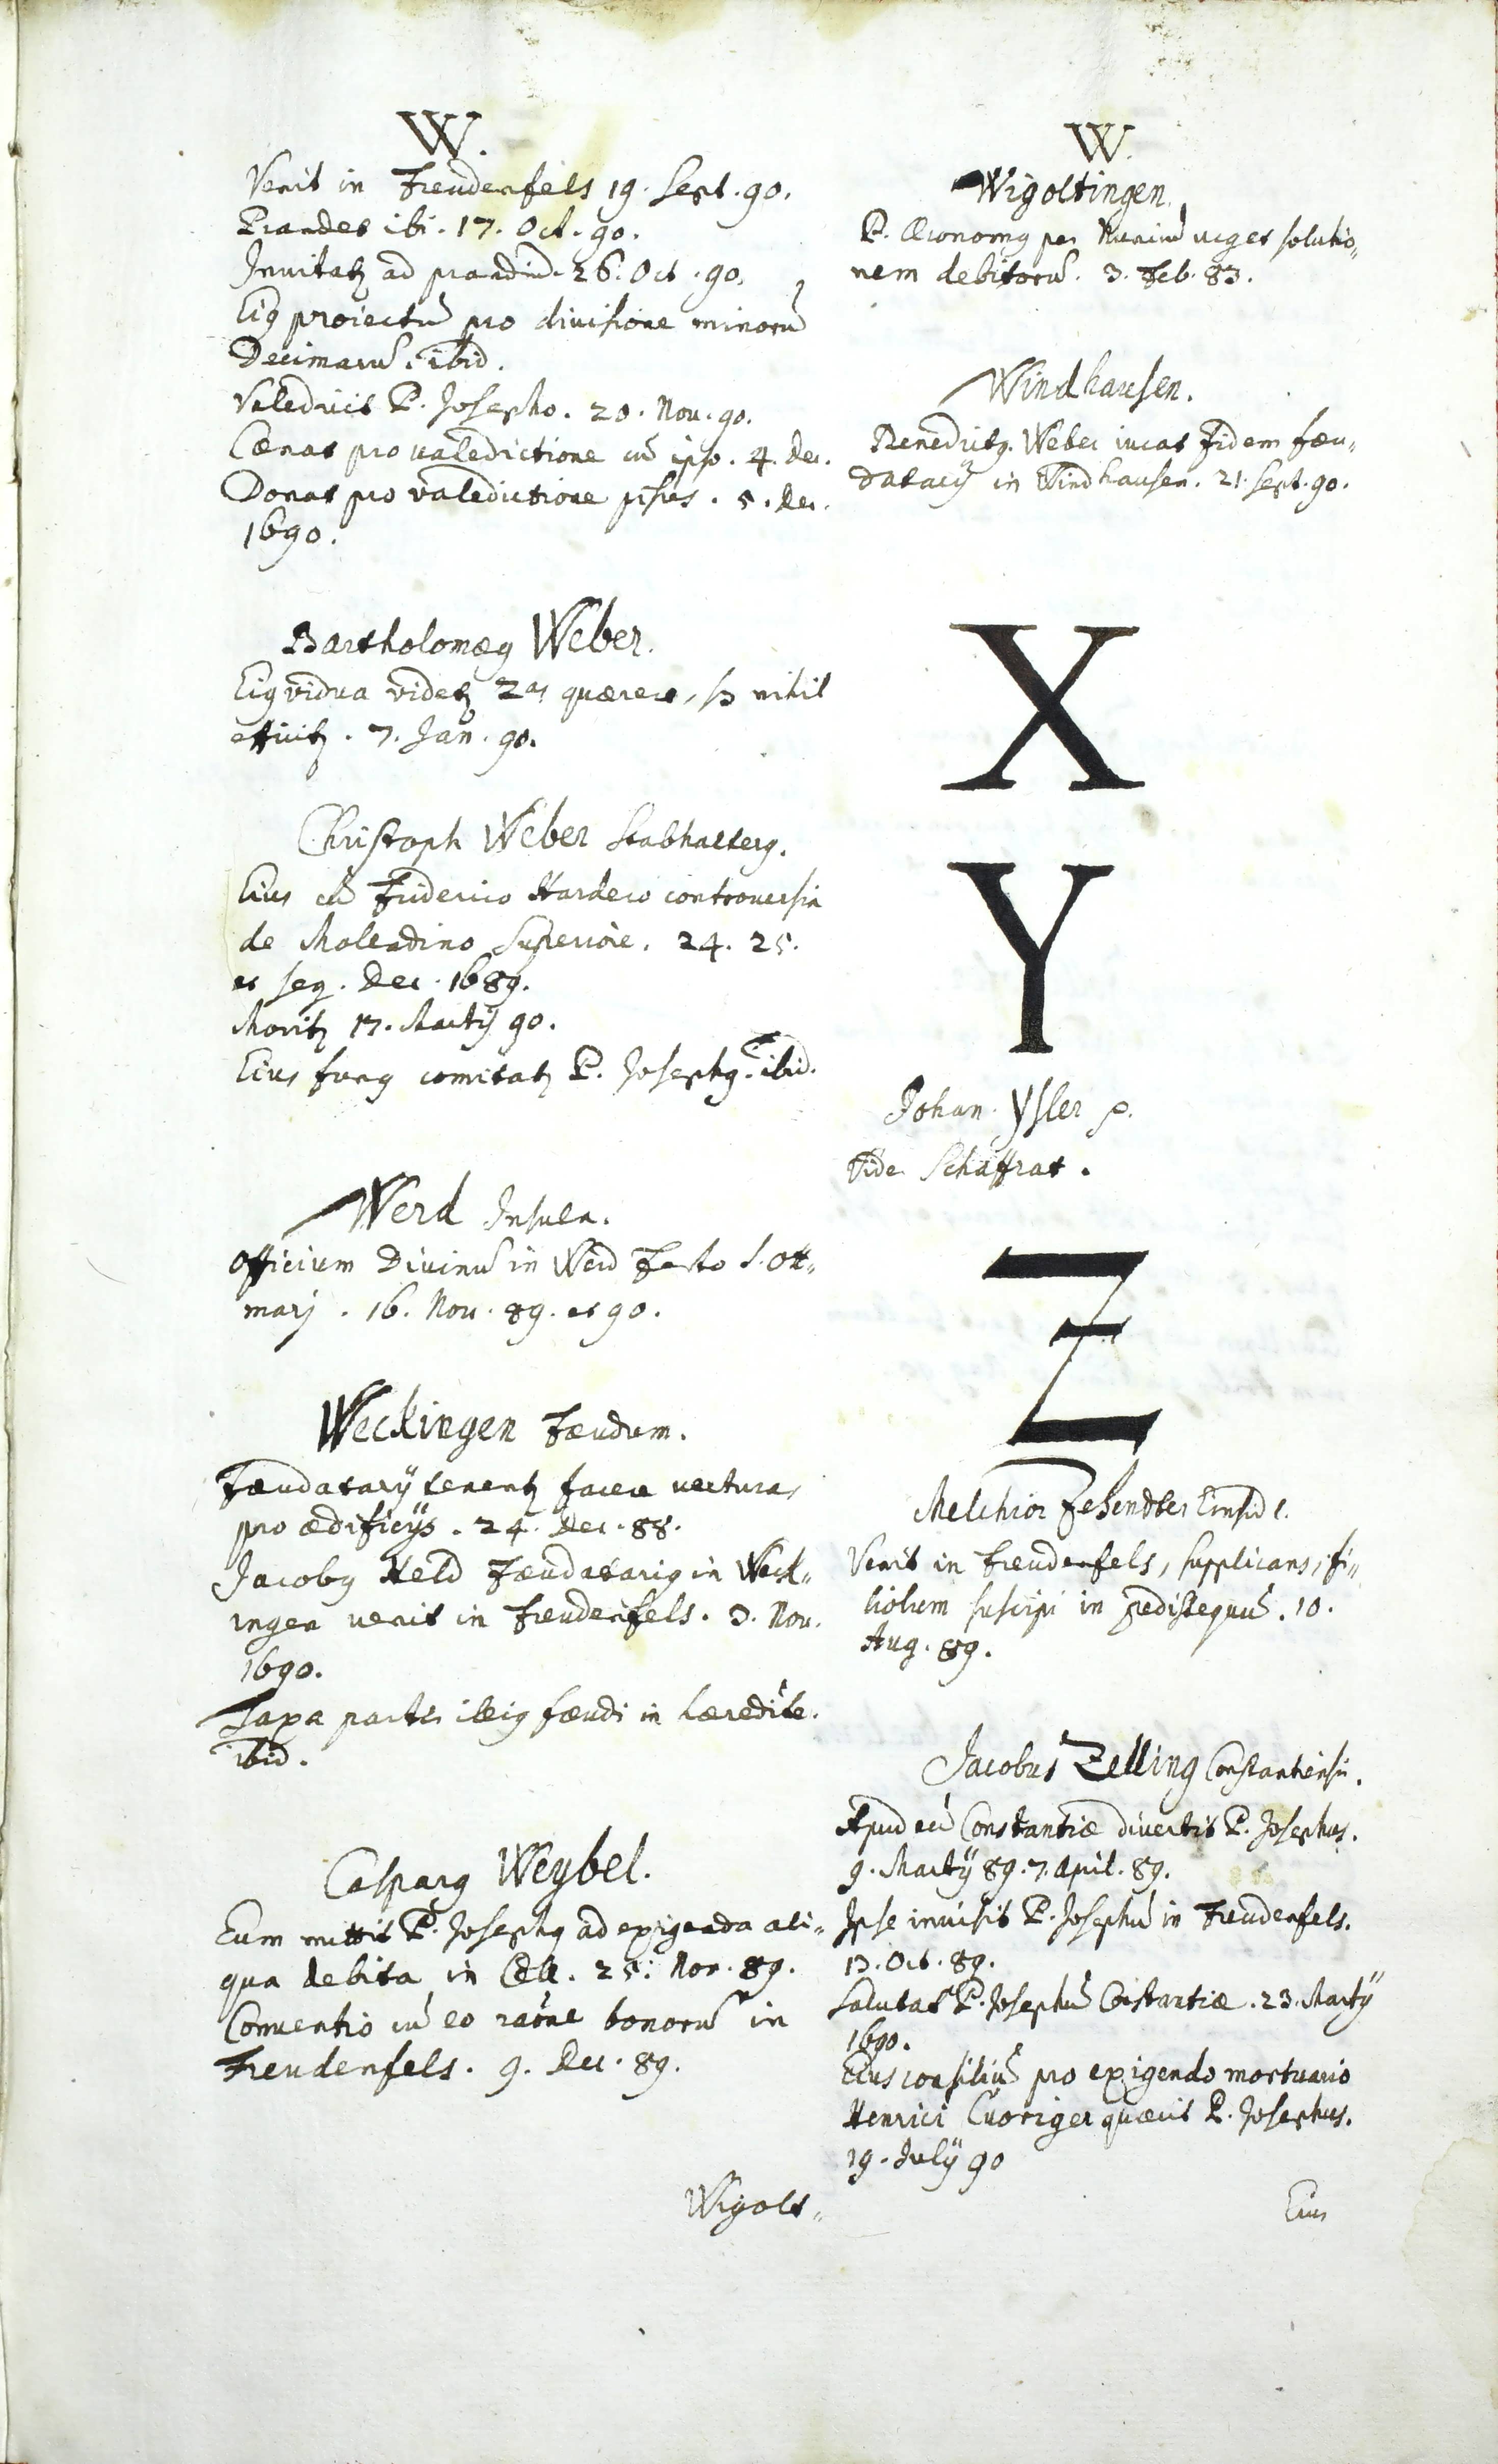 W.
Venit in Freudenfels 19. Sept. 90.
Prandet ibi. 17. Oct. 90.
Invitatꝫ ad prandiū. 26. Oct. 90.
Eiꝰ proiectū pro divisione minorū
Decimarū. ibid.
Valedicit P. Josepho. 20. Nov. 90.
Cænat pro valedictione cū ipso. 4. Dec.
Donat pro valedictione pisces. 5. Dec.
1690.
Bartholomæꝰ Weber.
Eiꝰ vidua videtꝫ 2as quærere, sꝫ nihil
efficitꝫ. 7. Jan. 90.
Christoph Weber Stabhalterꝰ.
Eius cū Friderico Hardero controversia
de Molendino Superiore. 24. 25.
et seq. Dec. 1689.
Moritꝫ 17. Martij 90.
Eius funꝰ comitatꝫ P. Josephꝰ. ibid.
Werd Insula.
Officium Divinū in Werd Festo S. Ott„
marj. 16. Nov. 89. et 90.
Weckingen Fæudum.
Fæudatarij tenentꝫ facere vecturas
pro ædificijs. 24. Dec. 88.
Jacobꝰ Held Fæudatariꝰ in Weck„
ingen venit in Freudenfels. 3. Nov.
1690.
Taxa partis illiꝰ fæudi in hæredite.
ibid.
Casparꝰ Weybel.
Eum mittit P. Josephꝰ ad exigenda ali„
qua debita in Cell. 25. Nov. 89.
Conventio cū eo raōne bonorū in
Freudenfels. 9. Dec. 89.
Wigolt„
W.
Wigoltingen.
P. Œconomꝰ per Nuniū urget solutio„
nem debitorū. 3. Feb. 83.
Windhausen.
Benedictꝰ. Weber iurat fidem fæu„
datarij in Windhausen. 21. Sept. 90.
X
Y
Johan. Ysler p.
Vide Schaffrat.
Z
Melchior Zehendter Einsidl.
Venit in Freudenfels, supplicans, fi„
liolum suscipi in pedissequū. 10.
Aug. 89.
Jacobus Zelling Constantiensis.
Apud eū Constantiæ divertit P. Josephus.
9. Martij 89. 7. April. 89.
Ipse invisit P. Josephū in Freudenfels.
13. Oct. 89.
Salutat P. Josephū Constantiæ. 23. Martij
1690.
Eius consiliū pro exigendo mortuario
Henrici quærit P. Josephus.
19. Julij 90
Eius